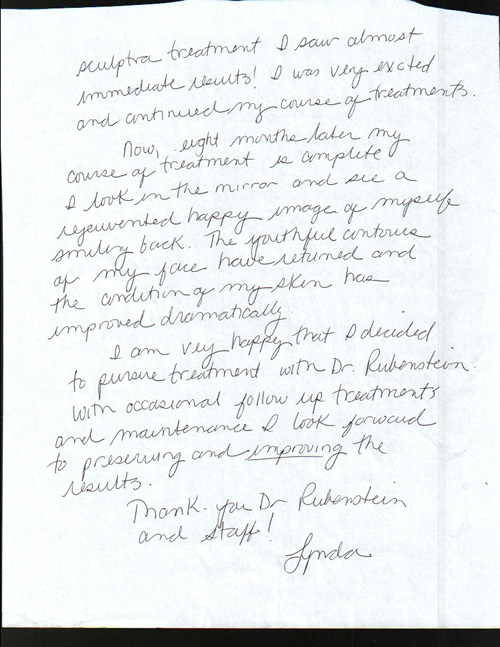 sculptra treatment I saw almost
immediate results! I was very excited
and continued my course of treatments.
Now, eight months later my
course of treatment is complete
I look in the mirror and see a
rejeuvented happy image of myself
smiling back. The youthful contours
of my face have returned and
the condition of my skin has
improved dramatically.
I am very happy that I decided
to pursue treatment with Dr. Rubenstein.
With occasional follow up treatments
and maintenance I look forward
to preserving and improving the
results.
Thank-you Dr Rubenstein
and staff!
Lynda